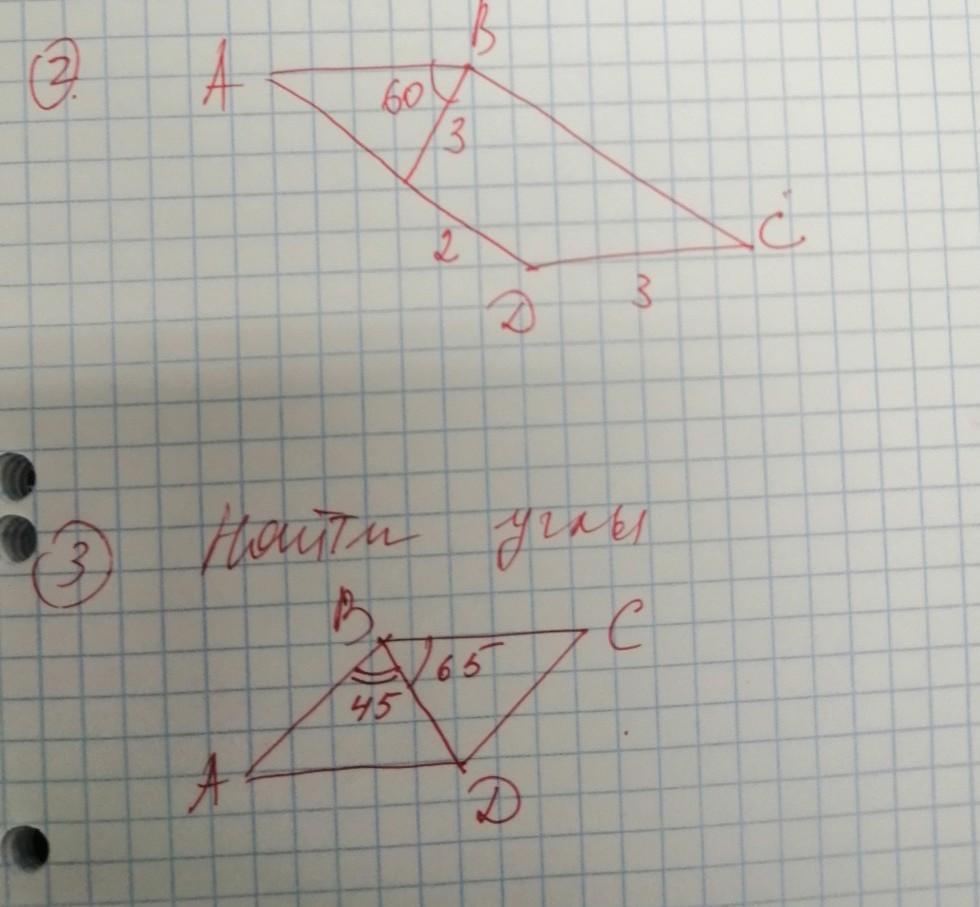 2.
B
A
60
3
C
2
3
D
3
Найти углы
B
C
65
45
A
D